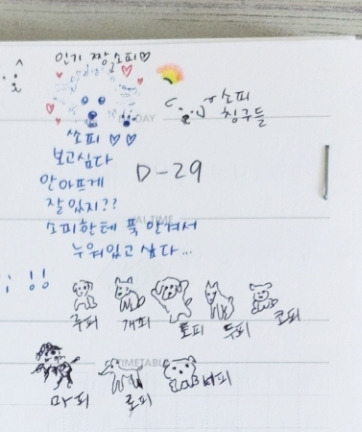 인기 짱 소피♡
소피
칭구들
쏘피 ♡♡
보고싶다
안아프게
D-29
잘있지??
소피한테 푹 안겨서
누워있고 싶다...
!!
루피 개피 토피 두피 코피
TIMETABLE
마피 로피 버피